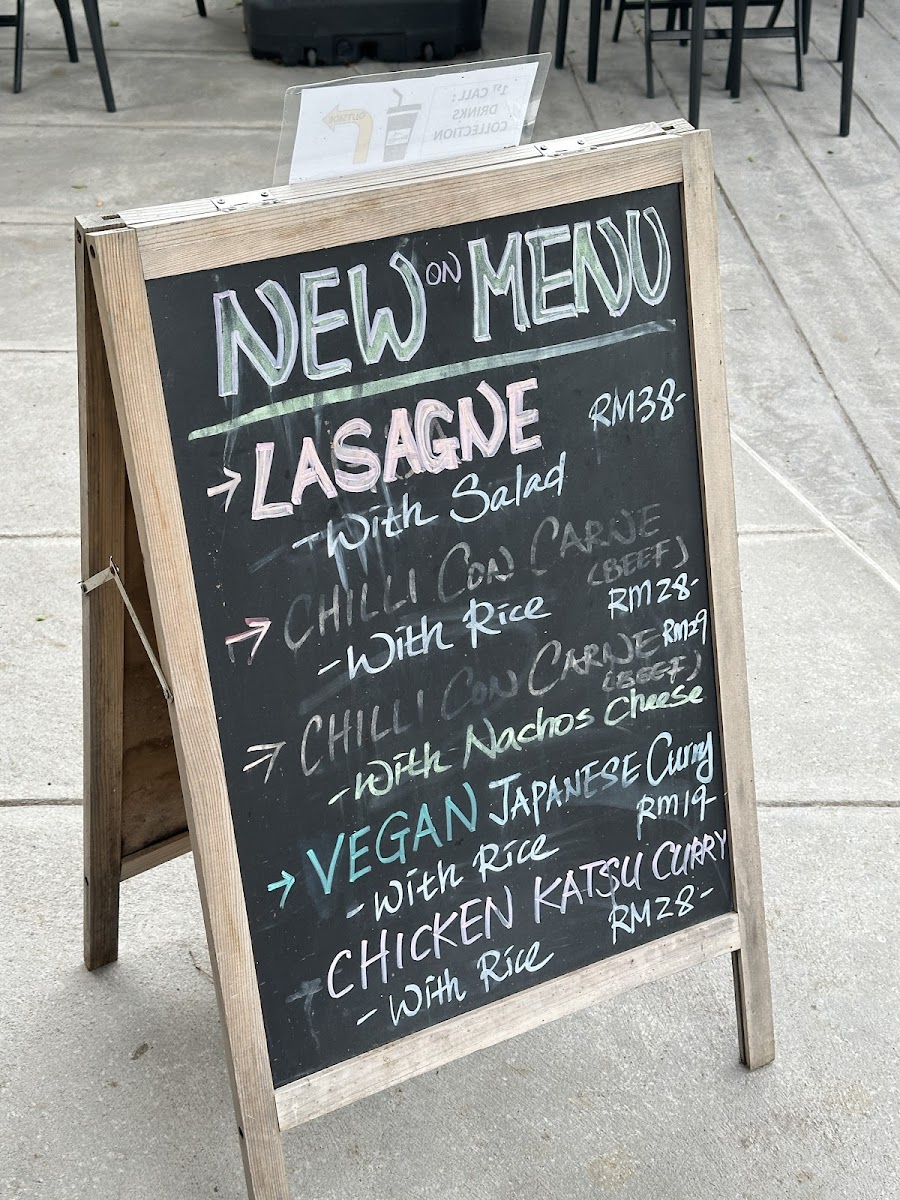 1ST CALL:
DRINKS
COLLECTION
OUTSIDE
NEW ON MENU
→ LASAGNE RM38-
- With Salad
→ CHILLI CON CARNE
(BEEF)
- With Rice RM28-
→ CHILLI CON CARNE RM29
(BEEF)
- With Nachos Cheese
→ VEGAN JAPANESE Curry
- With Rice RM19-
→ CHICKEN KATSU CURRY
- With Rice RM28-